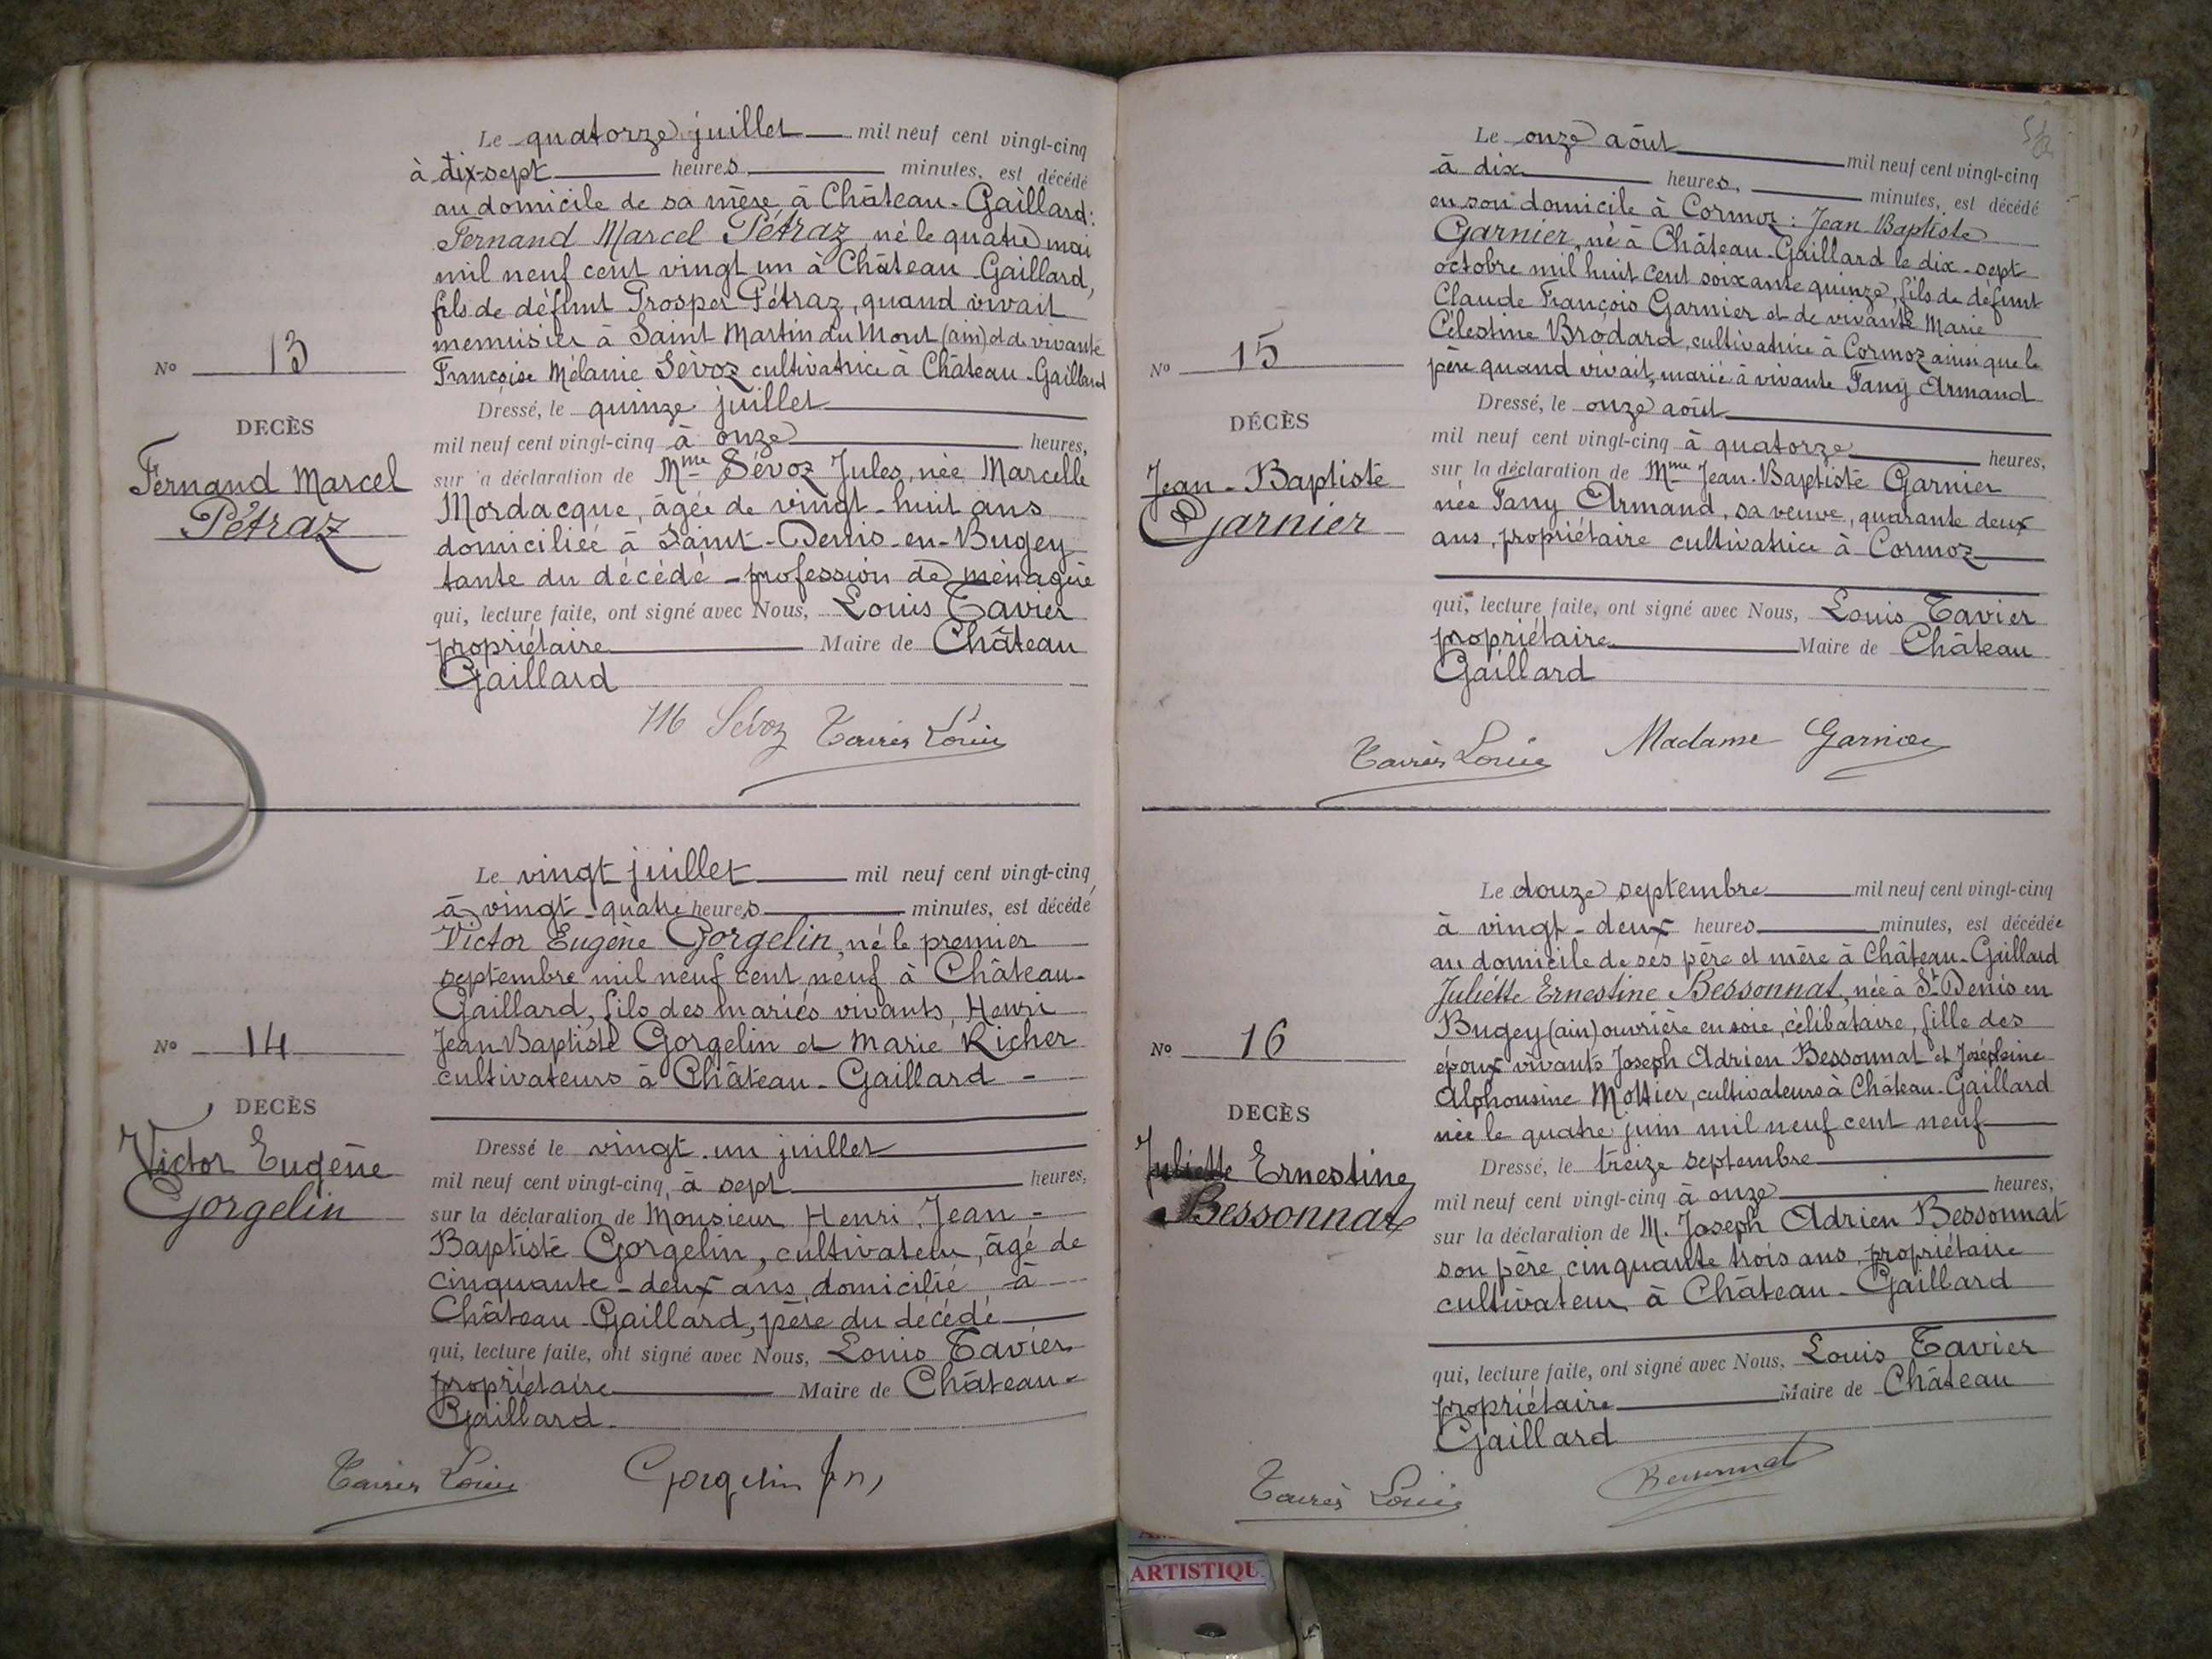 Le quatorze juillet mil neuf cent vingt-cinq
à dix-sept heures minutes, est décédé
au domicile de sa mère à Château-Gaillard:
Fernand Marcel Pétraz né le quatre mai
mil neuf cent vingt un à Château-Gaillard,
fils de défunt Prosper Pétraz, quand vivait
menuisier à Saint Martin du Mont (ain) et de vivante
Françoise Mélanie Sévoz cultivatrice à Château-Gaillard
No 13
DECÈS
Fernand Marcel
Pétraz
Dressé, le quinze juillet
mil neuf cent vingt-cinq à onze heures,
sur a déclaration de Mme Sévoz Jules, née Marcelle
Mordacque, âgée de vingt-huit ans
domiciliée à Saint-Denis-en-Bugey
tante du décédé - profession de ménagère
qui, lecture faite, ont signé avec Nous, Louis Tavier
propriétaire Maire de Château
Gaillard
Sévoz Tavier Louis
Le vingt juillet mil neuf cent vingt-cinq
à vingt-quatre heures minutes, est décédé
Victor Eugène Gorgelin, né le premier
septembre mil neuf cent neuf à Château-
Gaillard, fils des mariés vivants, Henri
Jean Baptiste Gorgelin et Marie Richer
cultivateurs à Château-Gaillard -
No 14
DECÈS
Victor Eugène
Gorgelin
Dressé le vingt-un juillet
mil neuf cent vingt-cinq, à sept heures,
sur la déclaration de Monsieur Henri Jean-
Baptiste Gorgelin, cultivateur, âgé de
cinquante-deux ans, domicilié à
Château-Gaillard, père du décédé
qui, lecture faite, ont signé avec Nous, Louis Tavier
propriétaire Maire de Château-
Gaillard.
Tavier Louis Gorgelin
Le onze août mil neuf cent vingt-cinq
à dix heures, minutes, est décédé
en son domicile à Cormoz: Jean Baptiste
Garnier, né à Château-Gaillard le dix-sept
octobre mil huit cent soixante quinze, fils de défunt
Claude François Garnier et de vivante Marie
Célestine Brodard, cultivatrice à Cormoz ainsi que le
père quand vivait, marié à vivante Fany Armand
No 15
DÉCÈS
Jean-Baptiste
Garnier
Dressé, le onze août
mil neuf cent vingt-cinq à quatorze heures,
sur la déclaration de Mme Jean-Baptiste Garnier
née Fany Armand, sa veuve, quarante deux
ans, propriétaire cultivatrice à Cormoz
qui, lecture faite, ont signé avec Nous, Louis Tavier
propriétaire Maire de Château
Gaillard
Tavier Louis Madame Garnier
Le douze septembre mil neuf cent vingt-cinq
à vingt-deux heures minutes, est décédée
au domicile de ses père et mère à Château-Gaillard
Juliette Ernestine Bessonnat, née à St Denis en
Bugey (ain) ouvrière en soie, célibataire, fille des
époux vivants Joseph Adrien Bessonnat et Joséphine
Alphonsine Mottier, cultivateurs à Château-Gaillard
née le quatre juin mil neuf cent neuf
No 16
DECÈS
Juliette Ernestine
Bessonnat
Dressé, le treize septembre
mil neuf cent vingt-cinq à onze heures,
sur la déclaration de M. Joseph Adrien Bessonnat
son père, cinquante trois ans, propriétaire
cultivateur à Château-Gaillard
qui, lecture faite, ont signé avec Nous, Louis Tavier
propriétaire Maire de Château
Gaillard
Tavier Louis Bessonnat
ARTISTIQU